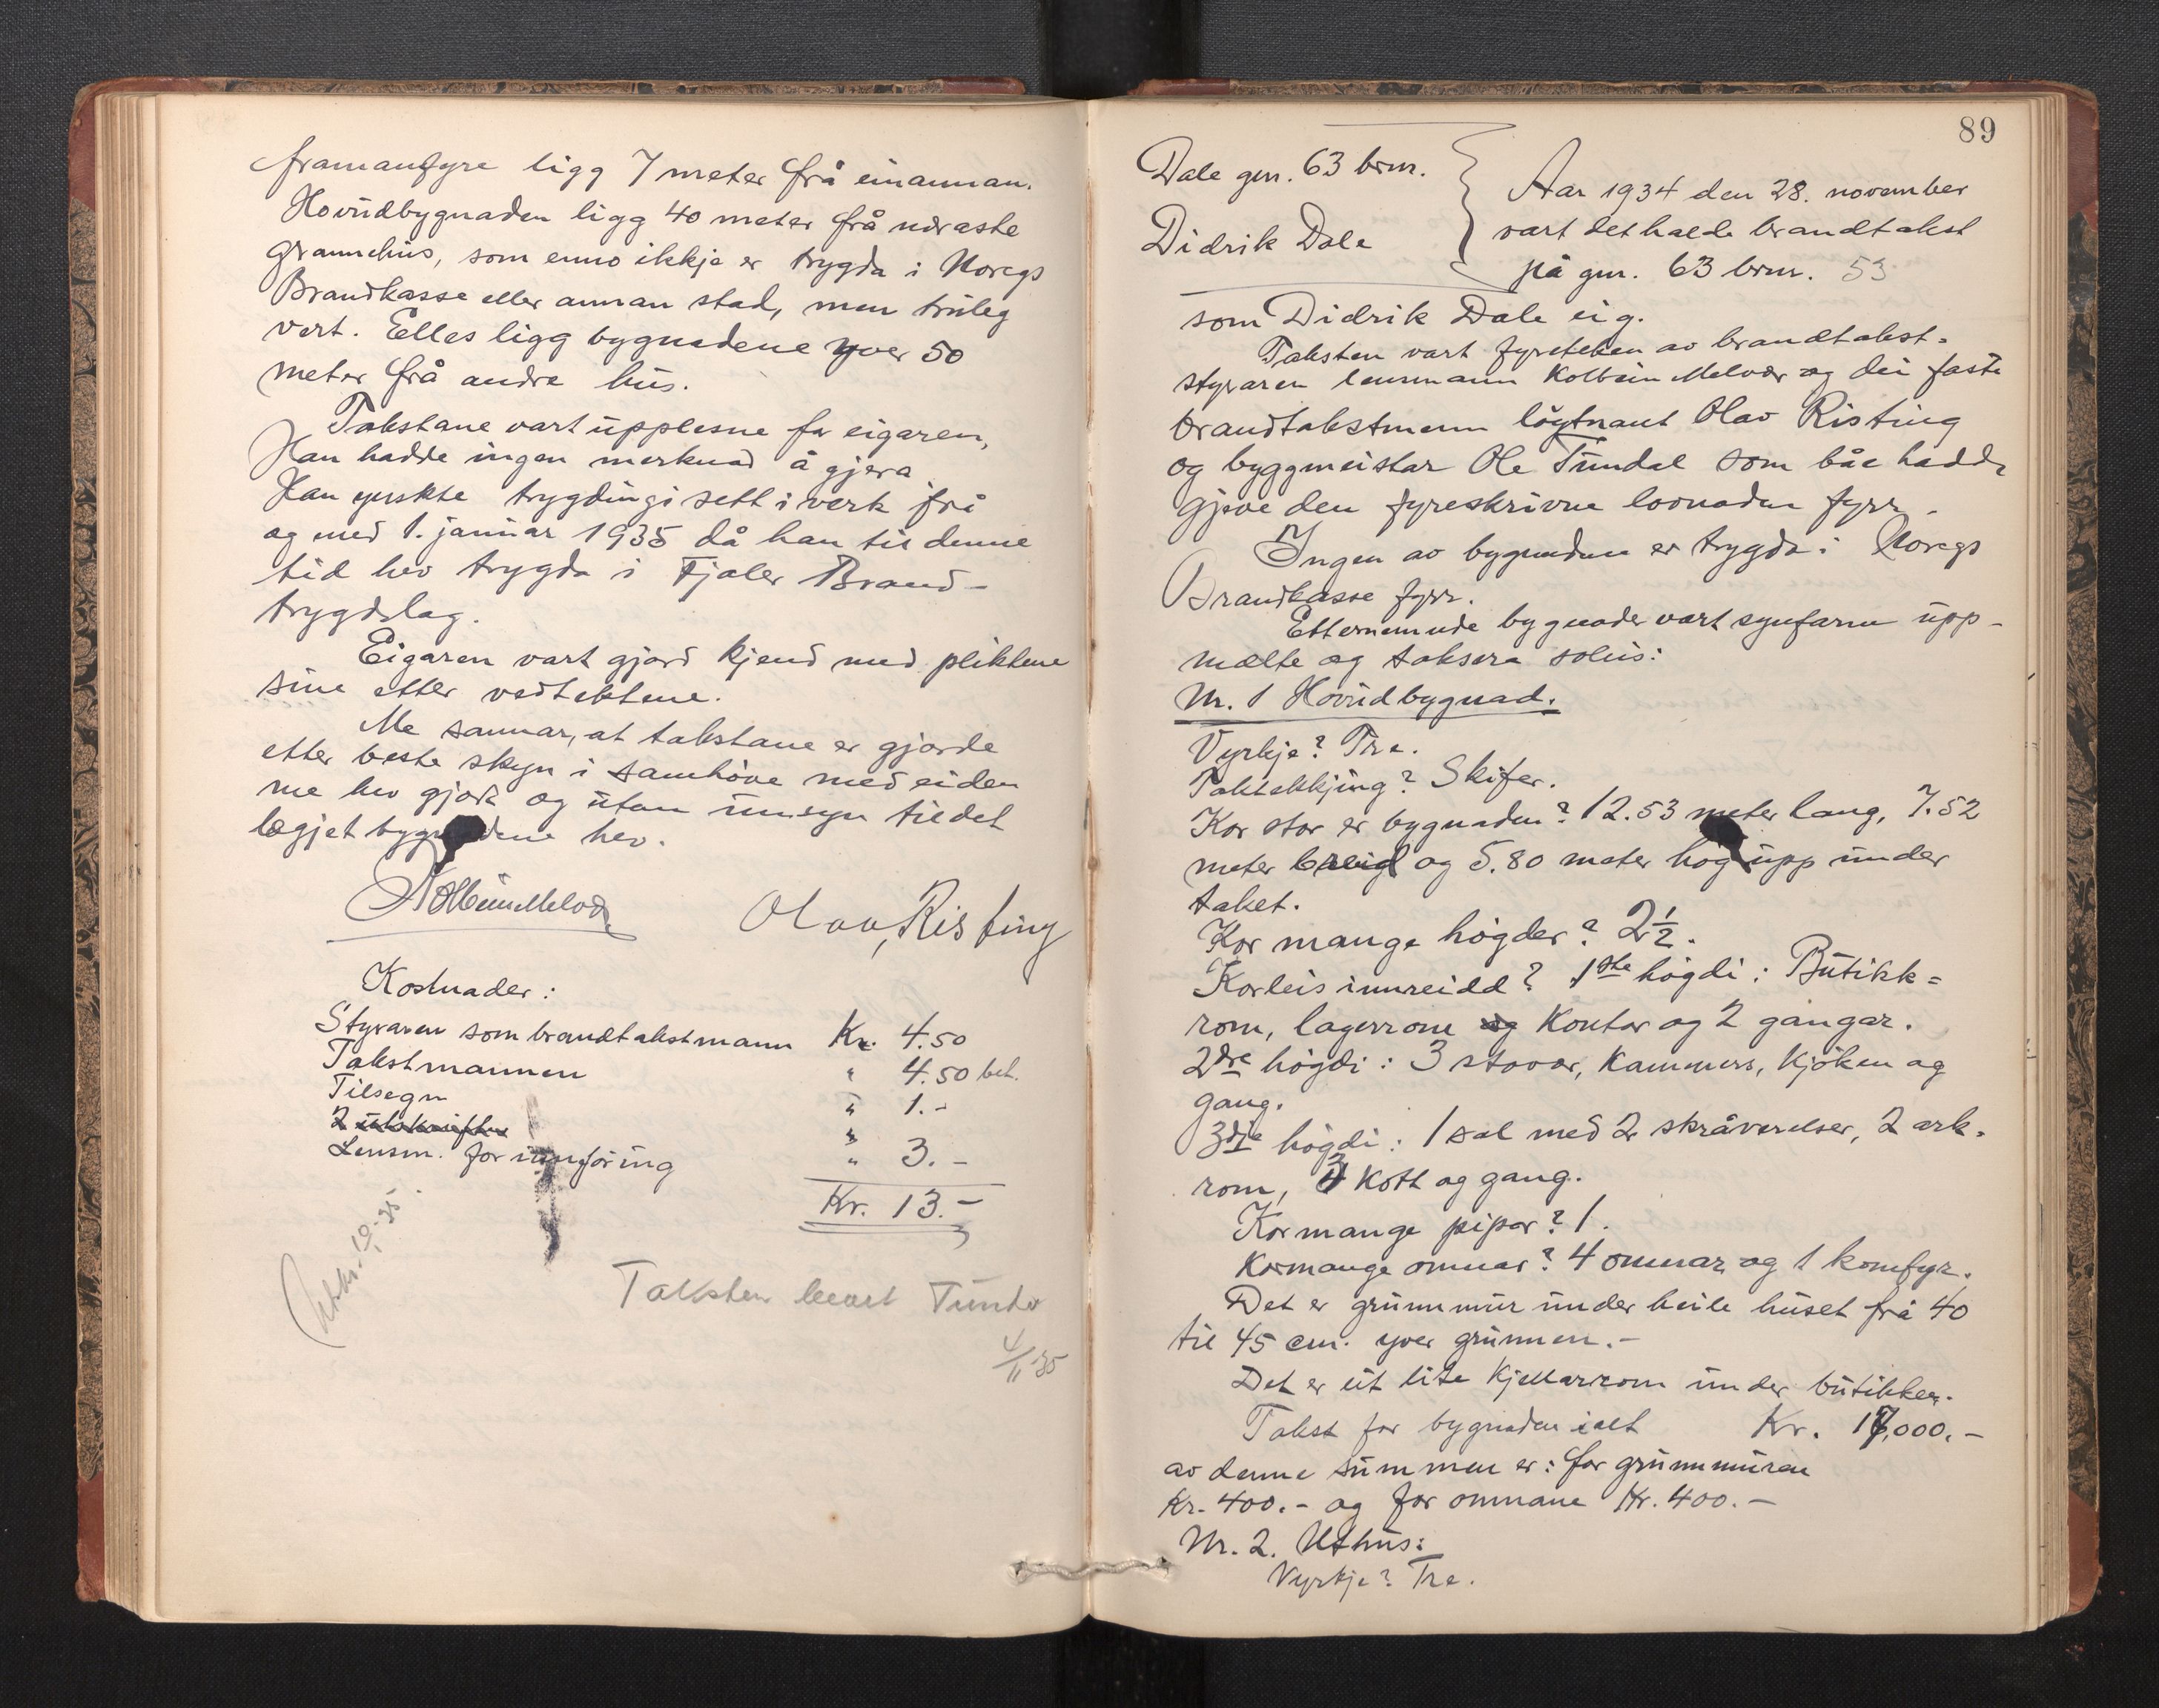 framanfyre ligg 7 meter frå einannan.
Hovudbygnaden ligg 40 meter frå næraste
grannehus, som enno ikkje er trygda i Noregs
Brandkasse eller annan stad, men truleg
vert. Elles ligg bygnadene yver 50
meter frå andre hus.
Takstane vart upplesne for eigaren,
Han hadde ingen merknad å gjera
Han ynskte trygdingi sett i verk frå
og med 1. januar 1935 då han til denne
tid hev trygda i Fjaler Brand-
trygdslag.
Eigaren vart gjord kjend med pliktene
sine etter vedtektene.
Me sannar, at takstane er gjorde
etter beste skyn i samhøve med eiden
me hev gjort og utan umsyn til det
lægjet bygnadene hev.
Kolbein Melvær
Olav Risting
Kostnader:
Styraren som brandtakstmann Kr. 4.50
Takstmannen " 4.50 bet.
Tilsegn " 1.-
2 utskrifter "
Lensm. for innføring " 3.-
Kr. 13.-
Utskr. 35
Taksten Tundo
4/11 35
89
Dale gnr. 63 brnr.
Didrik Dale
Aar 1934 den 28. november
vart det halde brandtakst
på gnr. 63 brnr. 53
som Didrik Dale eig.
Taksten vart fyreteken av brandtakst-
styraren lensmann Kolbein Melvær og dei faste
brandtakstmenn løytnant Olav Risting
og byggmeistar Ole Tundal som båe hadde
gjeve den fyreskrivne lovnaden fyrr.
Ingen av bygnadene er trygda i Noregs
Brandkasse fyrr.
Etternemnde bygnader vart synfarne upp-
mælte og taksera soleis:
Nr. 1 Hovudbygnad.
Vyrkje? Tre.
Taktekkjing? Skifer.
Kor stor er bygnaden? 12.53 meter lang, 7.52
meter breid og 5.80 meter høg upp under
taket.
Kor mange høgder? 2 1/2.
Korleis innreidd? 1ste høgdi: Butikk-
rom, lagerrom og Kontor og 2 gangar.
2dre høgdi: 3 stover, Kammers, Kjøken og
gang.
3dje høgdi: 1 sal med 2 skråverelser, 2 ark-
rom, 3 Kott og gang.
Kor mange pipor? 1.
Kor mange omnar? 4 omnar og 1 komfyr.
Det er grunnmur under heile huset frå 40
til 45 cm. yver grunnen.-
Det er eit lite Kjellarrom under butikken.
Takst for bygnaden ialt Kr. 17,000.-
av denne summen er: for grunnmuren
Kr. 400.- og for omnane Kr. 400.-
Nr. 2. Uthus:
Vyrkje? Tre.